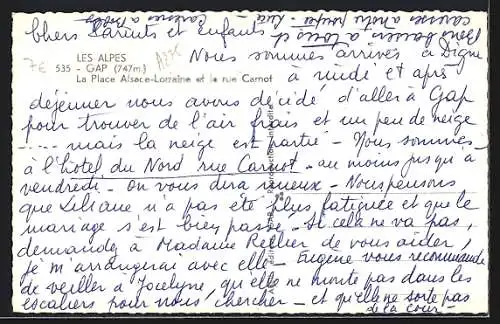 Chers Parents et enfants
Nous sommes arrivés à Digne
à midi et après
LES ALPES
535 - GAP (747m.)
La Place Alsace-Lorraine et la rue Carnot
7€
déjeuner nous avons décidé d'aller à Gap
pour trouver de l'air frais et un peu de neige
.... mais la neige est partie - Nous sommes
à l'hôtel du Nord rue Carnot - au moins jusqu'à
vendredi - on vous dira mieux - Nous pensons
que Liliane n'a pas été plus fatiguée et que le
mariage s'est bien passé - Si cela ne va pas,
demandez à Madame Rellier de vous aider,
je m'arrangerai avec elle - Eugène vous recommande
de veiller à Jocelyne, qu'elle ne monte pas dans les
escaliers pour nous chercher - et qu'elle ne sorte pas
de la cour -
Bons baisers à tous et